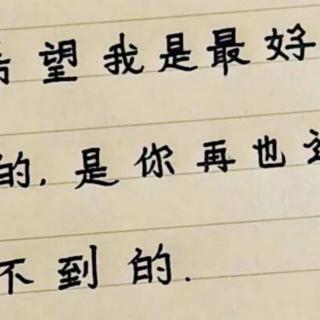 希望我是最好
的,是你再也
不到的.